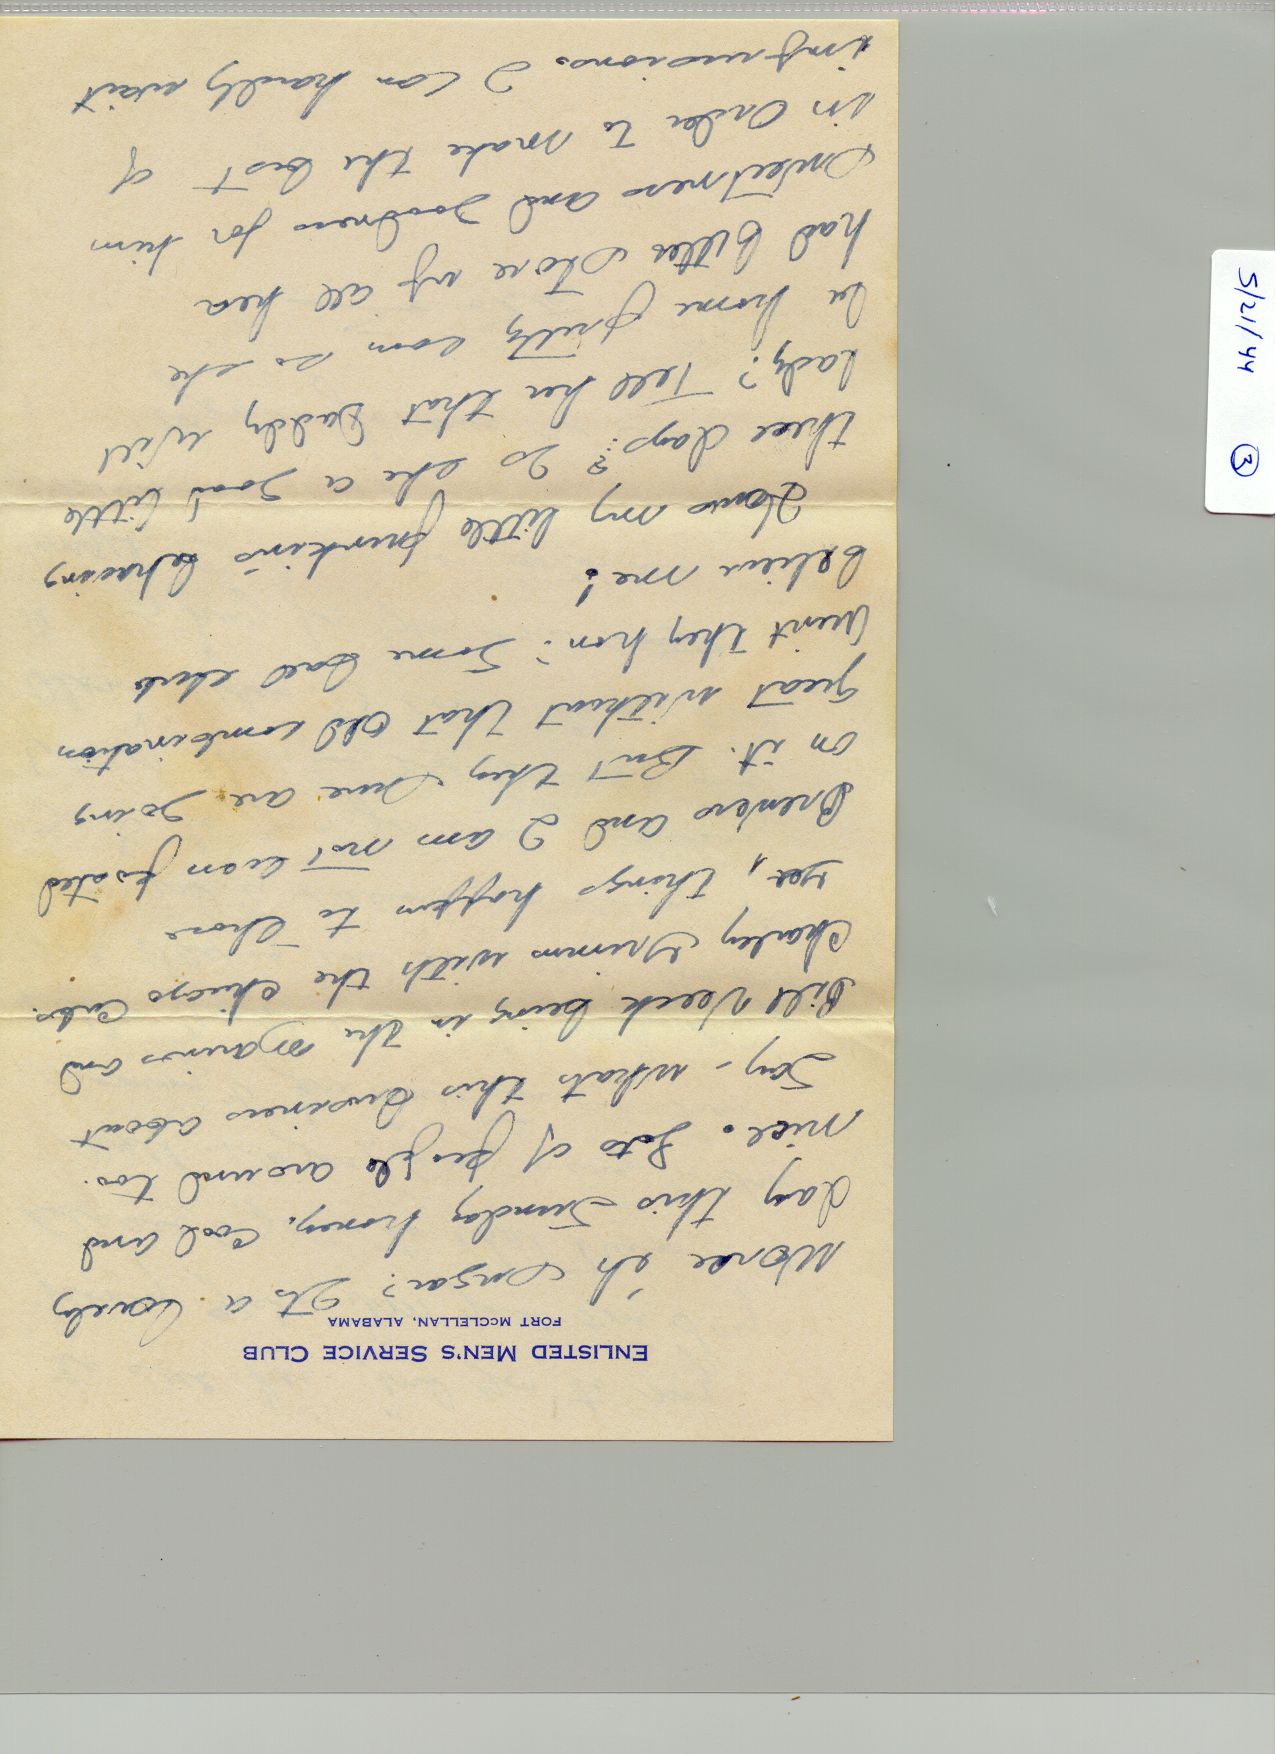 ENLISTED MEN'S SERVICE CLUB
FORT McCLELLAN, ALABAMA
Worse eh sugar? Its a lovely
day this Sunday honey. Cool and
nice. Lots of people around too.
Say - whats this business about
Bill Veeck being in the marines and
Charley Grimm with the Chicago Cubs.
Yes, things happen to those
Brewers and I am not even posted
on it. But they sure are going
great without that old combination
Aren't they hon? Some ball club
believe me!
Hows my little punkins behaving
these days? Is she a good little
lady? Tell her that Daddy will
be home pretty soon so she
had better store up all her
sweetness and goodness for him
in order to make the best of
impressions. I can hardly wait
5/21/44 3